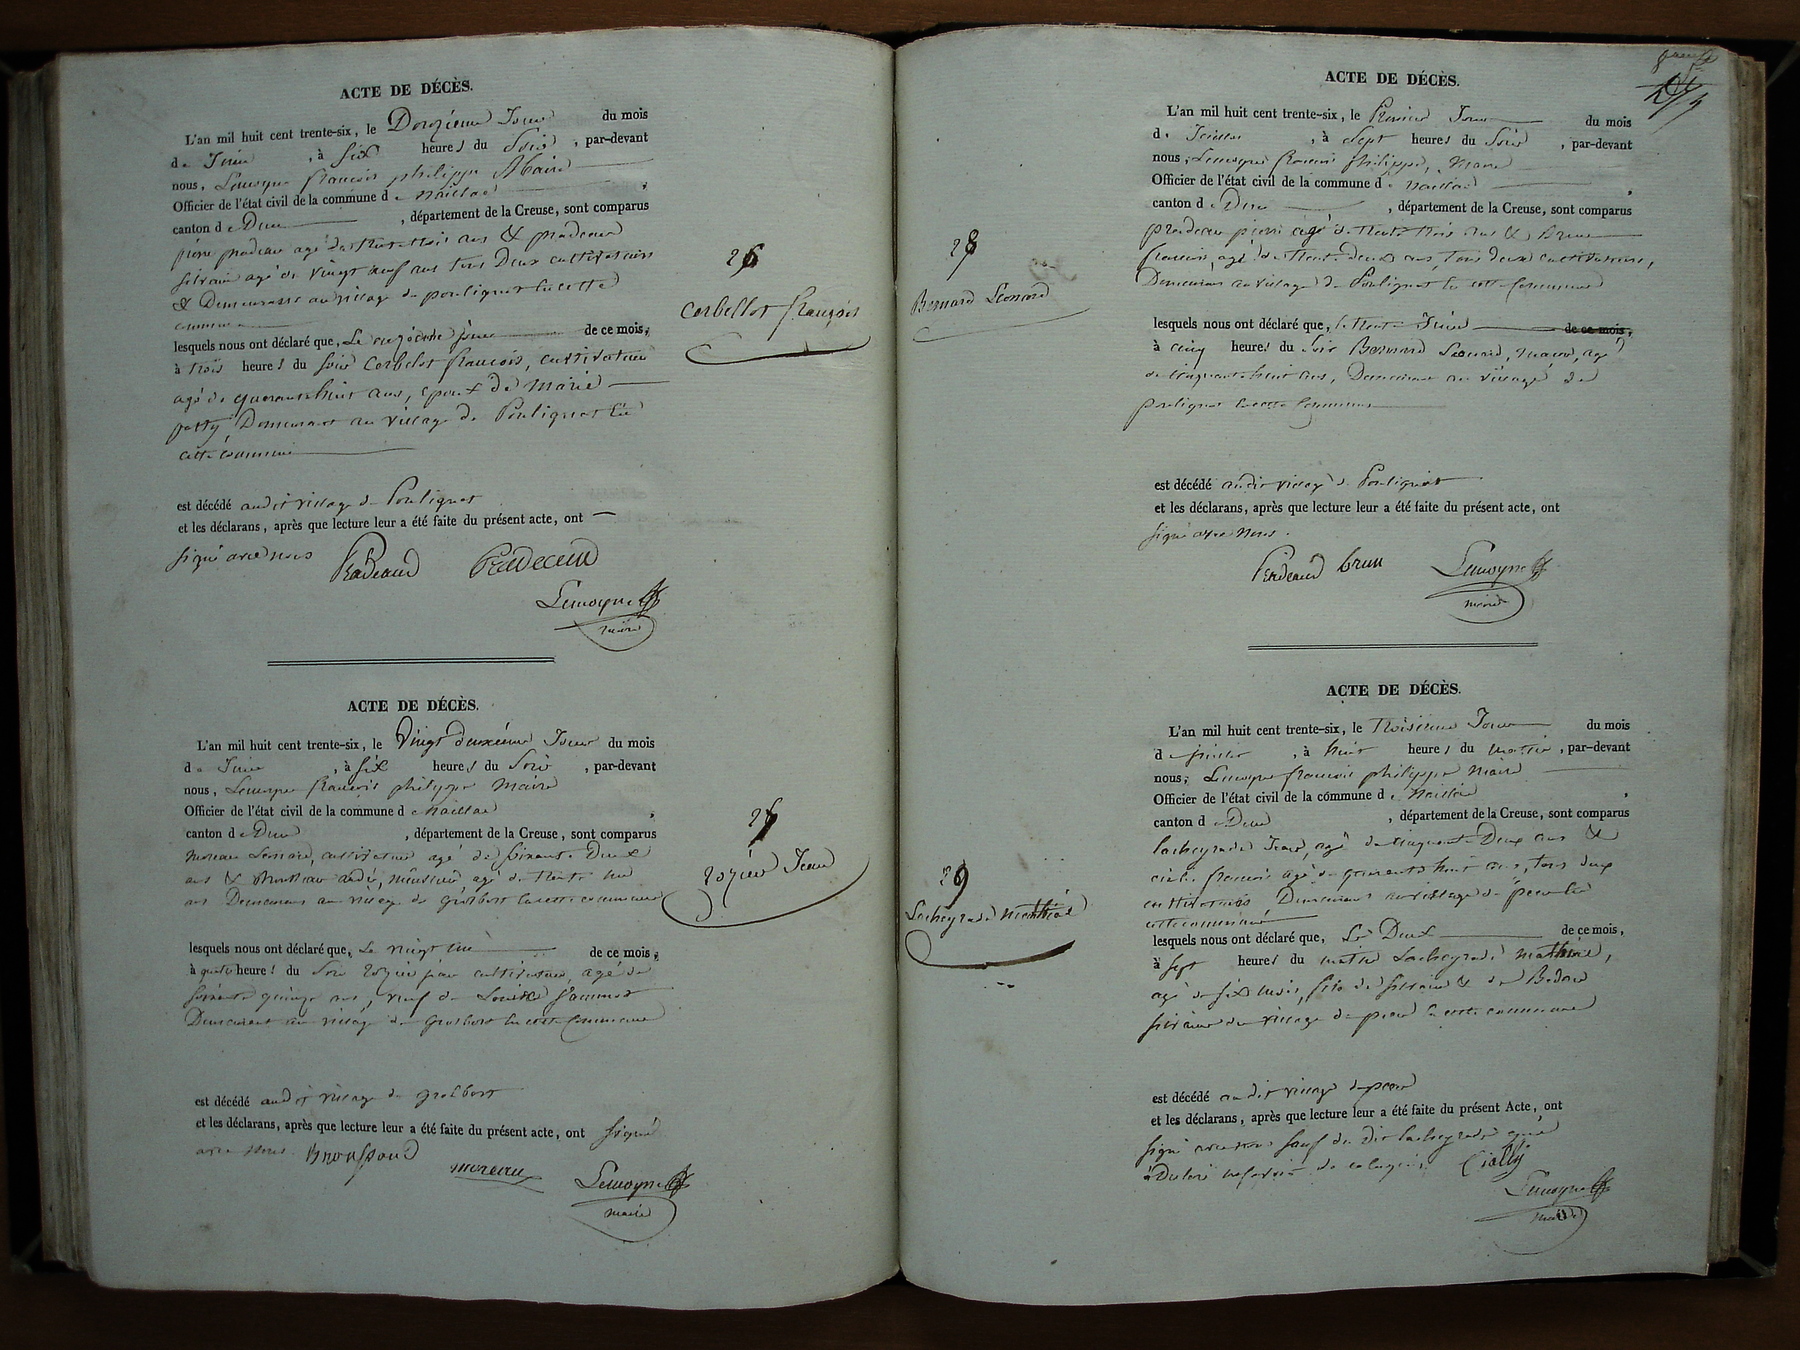 ACTE DE DÉCÈS.
L'an mil huit cent trente-six, le Douzième Jour du mois
de Juin, à Six heures du Soir, par-devant
nous, Lemoyne françois philippe Maire
Officier de l'état civil de la commune de naillac,
canton de Dun, département de la Creuse, sont comparus
pierre pradeau agé de trente trois ans & pradeau
silvain agé de vingt neuf ans tous Deux cultivateurs
& Demeurant au village de poulignat en cette
commune
lesquels nous ont déclaré que, Le onzième jour de ce mois,
à trois heures du soir Corbelot françois, cultivateur
agé de quarante huit ans, époux de Marie
petit, Demeurant au village de Poulignat en
cette commune
est décédé audit village de Poulignat
et les déclarans, après que lecture leur a été faite du présent acte, ont
signé avec nous Pradeaud Pradeaud
Lemoyne
maire
26
Corbellot françois
ACTE DE DÉCÈS.
L'an mil huit cent trente-six, le Vingt deuxième Jour du mois
de Juin, à six heures du Soir, par-devant
nous, Lemoyne françois philippe Maire
Officier de l'état civil de la commune de Naillac,
canton de Dun, département de la Creuse, sont comparus
Moreau Leonard, cultivateur agé de soixante Deux
ans & andré, agé de trente un
ans Demeurans au village de en cette commune
lesquels nous ont déclaré que, Le vingt un de ce mois,
à quatre heures du Soir rozier jean cultivateur, agé de
soixante quinze ans, veuf de Louise
Demeurant au village de en cette Commune
est décédé audit village de
et les déclarans, après que lecture leur a été faite du présent acte, ont signé
avec nous. Moreau Lemoyne
maire
27
rozier Jean
28
Bernard Leonard
ACTE DE DÉCÈS.
L'an mil huit cent trente-six, le Premier Jour du mois
de Juillet, à Sept heures du Soir, par-devant
nous, Lemoyne françois philippe, Maire
Officier de l'état civil de la commune de naillac,
canton de Dun, département de la Creuse, sont comparus
pradeau pierre agé de trente trois ans & brun
françois, agé de trente deux ans, tous deux cultivateurs,
Demeurans au village de Poulignat en cette Commune
lesquels nous ont déclaré que, le trente Juin de ce mois,
à cinq heures du soir Bernard Leonard, , agé
de cinquante huit ans, Demeurant au village de
poulignat en cette Commune
est décédé audit village de Poulignat
et les déclarans, après que lecture leur a été faite du présent acte, ont
signé avec Nous.
Pradeaud brun Lemoyne
maire
29
Lacheyrade
ACTE DE DÉCÈS.
L'an mil huit cent trente-six, le troisième Jour du mois
de juillet, à huit heures du matin, par-devant
nous, Lemoyne françois philippe Maire
Officier de l'état civil de la commune de Naillac,
canton de Dun, département de la Creuse, sont comparus
lacheyrade Jean, agé de cinquante Deux ans &
françois agé de quarante huit ans, tous deux
cultivateurs Demeurans au village de en
cette commune
lesquels nous ont déclaré que, Le Deux de ce mois,
à sept heures du matin Lacheyrade ,
agé de six mois, fils de silvain & de
du village de en cette commune
est décédé au dit village
et les déclarans, après que lecture leur a été faite du présent Acte, ont
signé avec nous sauf le dit lacheyrade qui a
Déclaré ne savoir de ce
Lemoyne
maire